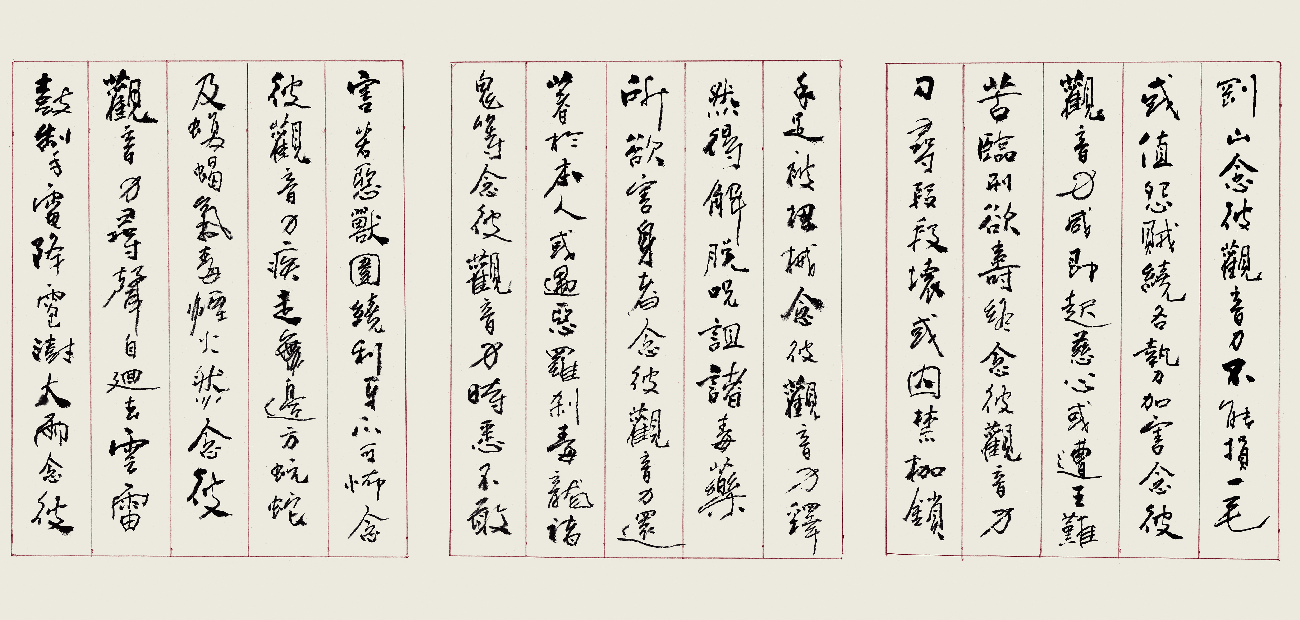 剛山念彼觀音力不能損一毛
或值怨賊繞各執刀加害念彼
觀音力咸即起慈心或遭王難
苦臨刑欲壽終念彼觀音力
刀尋段段壞或囚禁枷鎖
手足被杻械念彼觀音力釋
然得解脫呪詛諸毒藥
所欲害身者念彼觀音力還
著於本人或遇惡羅刹毒龍諸
鬼等念彼觀音力時悉不敢
害若惡獸圍繞利牙爪可怖念
彼觀音力疾走無邊方蚖蛇
及蝮蝎氣毒煙火然念彼
觀音力尋聲自迴去雲雷
鼓掣電降雹澍大雨念彼